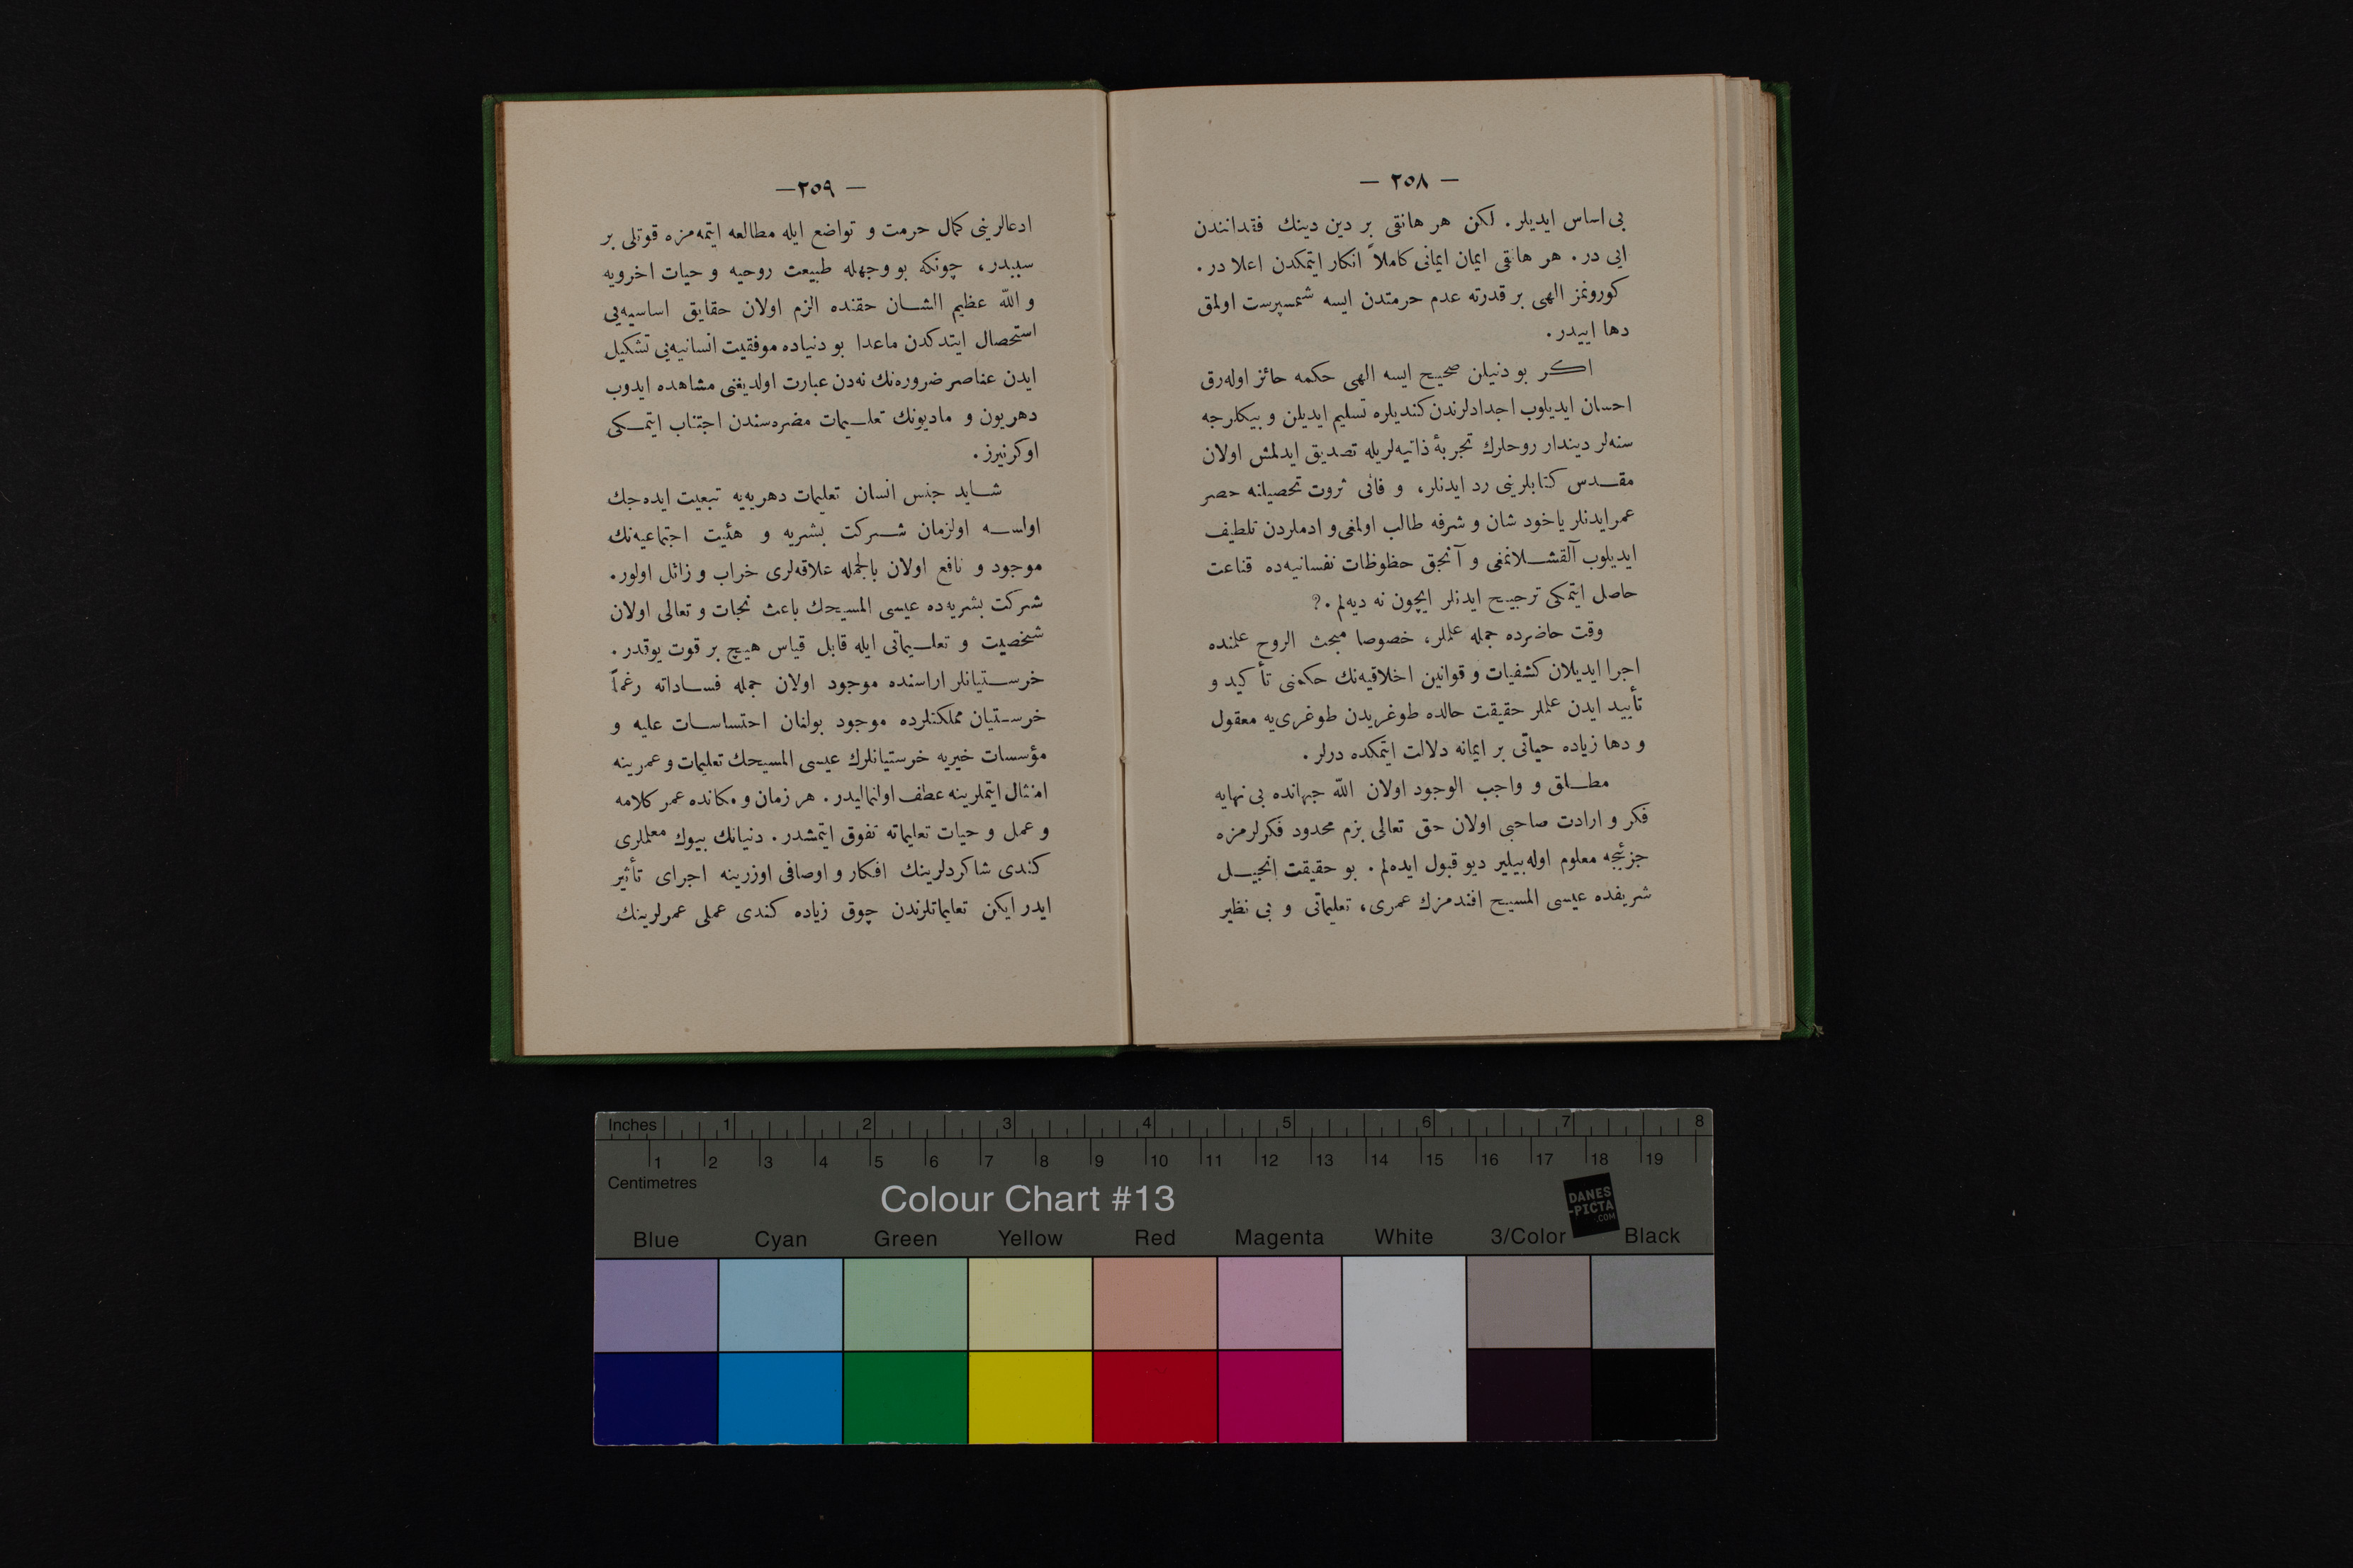 — ٢٥٨ —
بی اساس ایدیلر. لکن هر هانقی بر دین دینك فقدانندن
ایی در. هر هانقی ایمان ایمانی کاملاً انکار ایتمکدن اعلا در.
کورونمز الهی بر قدرته عدم حرمتدن ایسه شمسپرست اولمق
دها اییدر.
اکر بو دنیلن صحیح ایسه الهی حکمه حائز اوله‌رق
احسان ایدیلوب اجدادلرندن کندیلره تسلیم ایدیلن و بیکلرجه
سنه‌لر دیندار روحلرك تجربهٔ ذاتیه‌لریله تصدیق ایدلمش اولان
مقدس کتابلرینی رد ایدنلر، و فانی ثروت تحصیلنه حصر
عمر ایدنلر یاخود شان و شرفه طالب اولمغی و ادملردن تلطیف
ایدیلوب آلقشلانمغی و آنجق حظوظات نفسانیه‌ده قناعت
حاصل ایتمکی ترجیح ایدنلر ایچون نه دیه‌لم.؟
وقت حاضرده جمله علملر، خصوصا مبحث الروح علمنده
اجرا ایدیلان کشفیات و قوانین اخلاقیه‌نك حکمنی تأکید و
تأیید ایدن علملر حقیقت حالده طوغریدن طوغری‌یه معقول
و دها زیاده حیاتی بر ایمانه دلالت ایتمکده درلر.
مطلق و واجب الوجود اولان اللّٰه جهانده بی نهایه
فکر و ارادت صاحبی اولان حق تعالی بزم محدود فکرلرمزه
جزئیجه معلوم اوله‌بیلیر دیو قبول ایده‌لم. بو حقیقت انجیل
شریفده عیسی المسیح افندمزك عمری، تعلیماتی و بی نظیر
— ٢٥٩ —
ادعالرینی کمال حرمت و تواضع ایله مطالعه ایتمه‌مزه قوتلی بر
سببدر، چونکه بو وجهله طبیعت روحیه و حیات اخرویه
و اللّٰه عظیم الشان حقنده الزم اولان حقایق اساسیه‌یی
استحصال ایتدکدن ماعدا بو دنیاده موفقیت انسانیه‌یی تشکیل
ایدن عناصر ضروره‌نك نه‌دن عبارت اولدیغنی مشاهده ایدوب
دهریون و مادیونك تعلیمات مضره‌سندن اجتناب ایتمکی
اوکرنیرز.
شاید جنس انسان تعلیمات دهریه‌یه تبعیت ایده‌جك
اولسه اولزمان شرکت بشریه و هئیت اجتماعیه‌نك
موجود و نافع اولان بالجمله علاقه‌لری خراب و زائل اولور.
شرکت بشریه‌ده عیسی المسیحك باعث نجات و تعالی اولان
شخصیت و تعلیماتی ایله قابل قیاس هیچ بر قوت یوقدر.
خرستیانلر اراسنده موجود اولان جمله فساداته رغماً
خرستیان مملکتلرده موجود بولنان احتساسات علیه و
مؤسسات خیریه خرستیانلرك عیسی المسیحك تعلیمات و عمرینه
امتثال ایتملرینه عطف اولنمالیدر. هر زمان و مکانده عمر کلامه
و عمل و حیات تعلیماته تفوق ایتمشدر. دنیانك بیوك معلملری
کندی شاکردلرینك افکار و اوصافی اوزرینه اجرای تأثیر
ایدر ایکن تعلیماتلرندن چوق زیاده کندی عملی عمرلرینك
Inches 1 2 3 4 5 6 7 8
1 2 3 4 5 6 7 8 9 10 11 12 13 14 15 16 17 18 19
Centimetres
Colour Chart #13
DANES
-PICTA
.COM
Blue Cyan Green Yellow Red Magenta White 3/Color Black